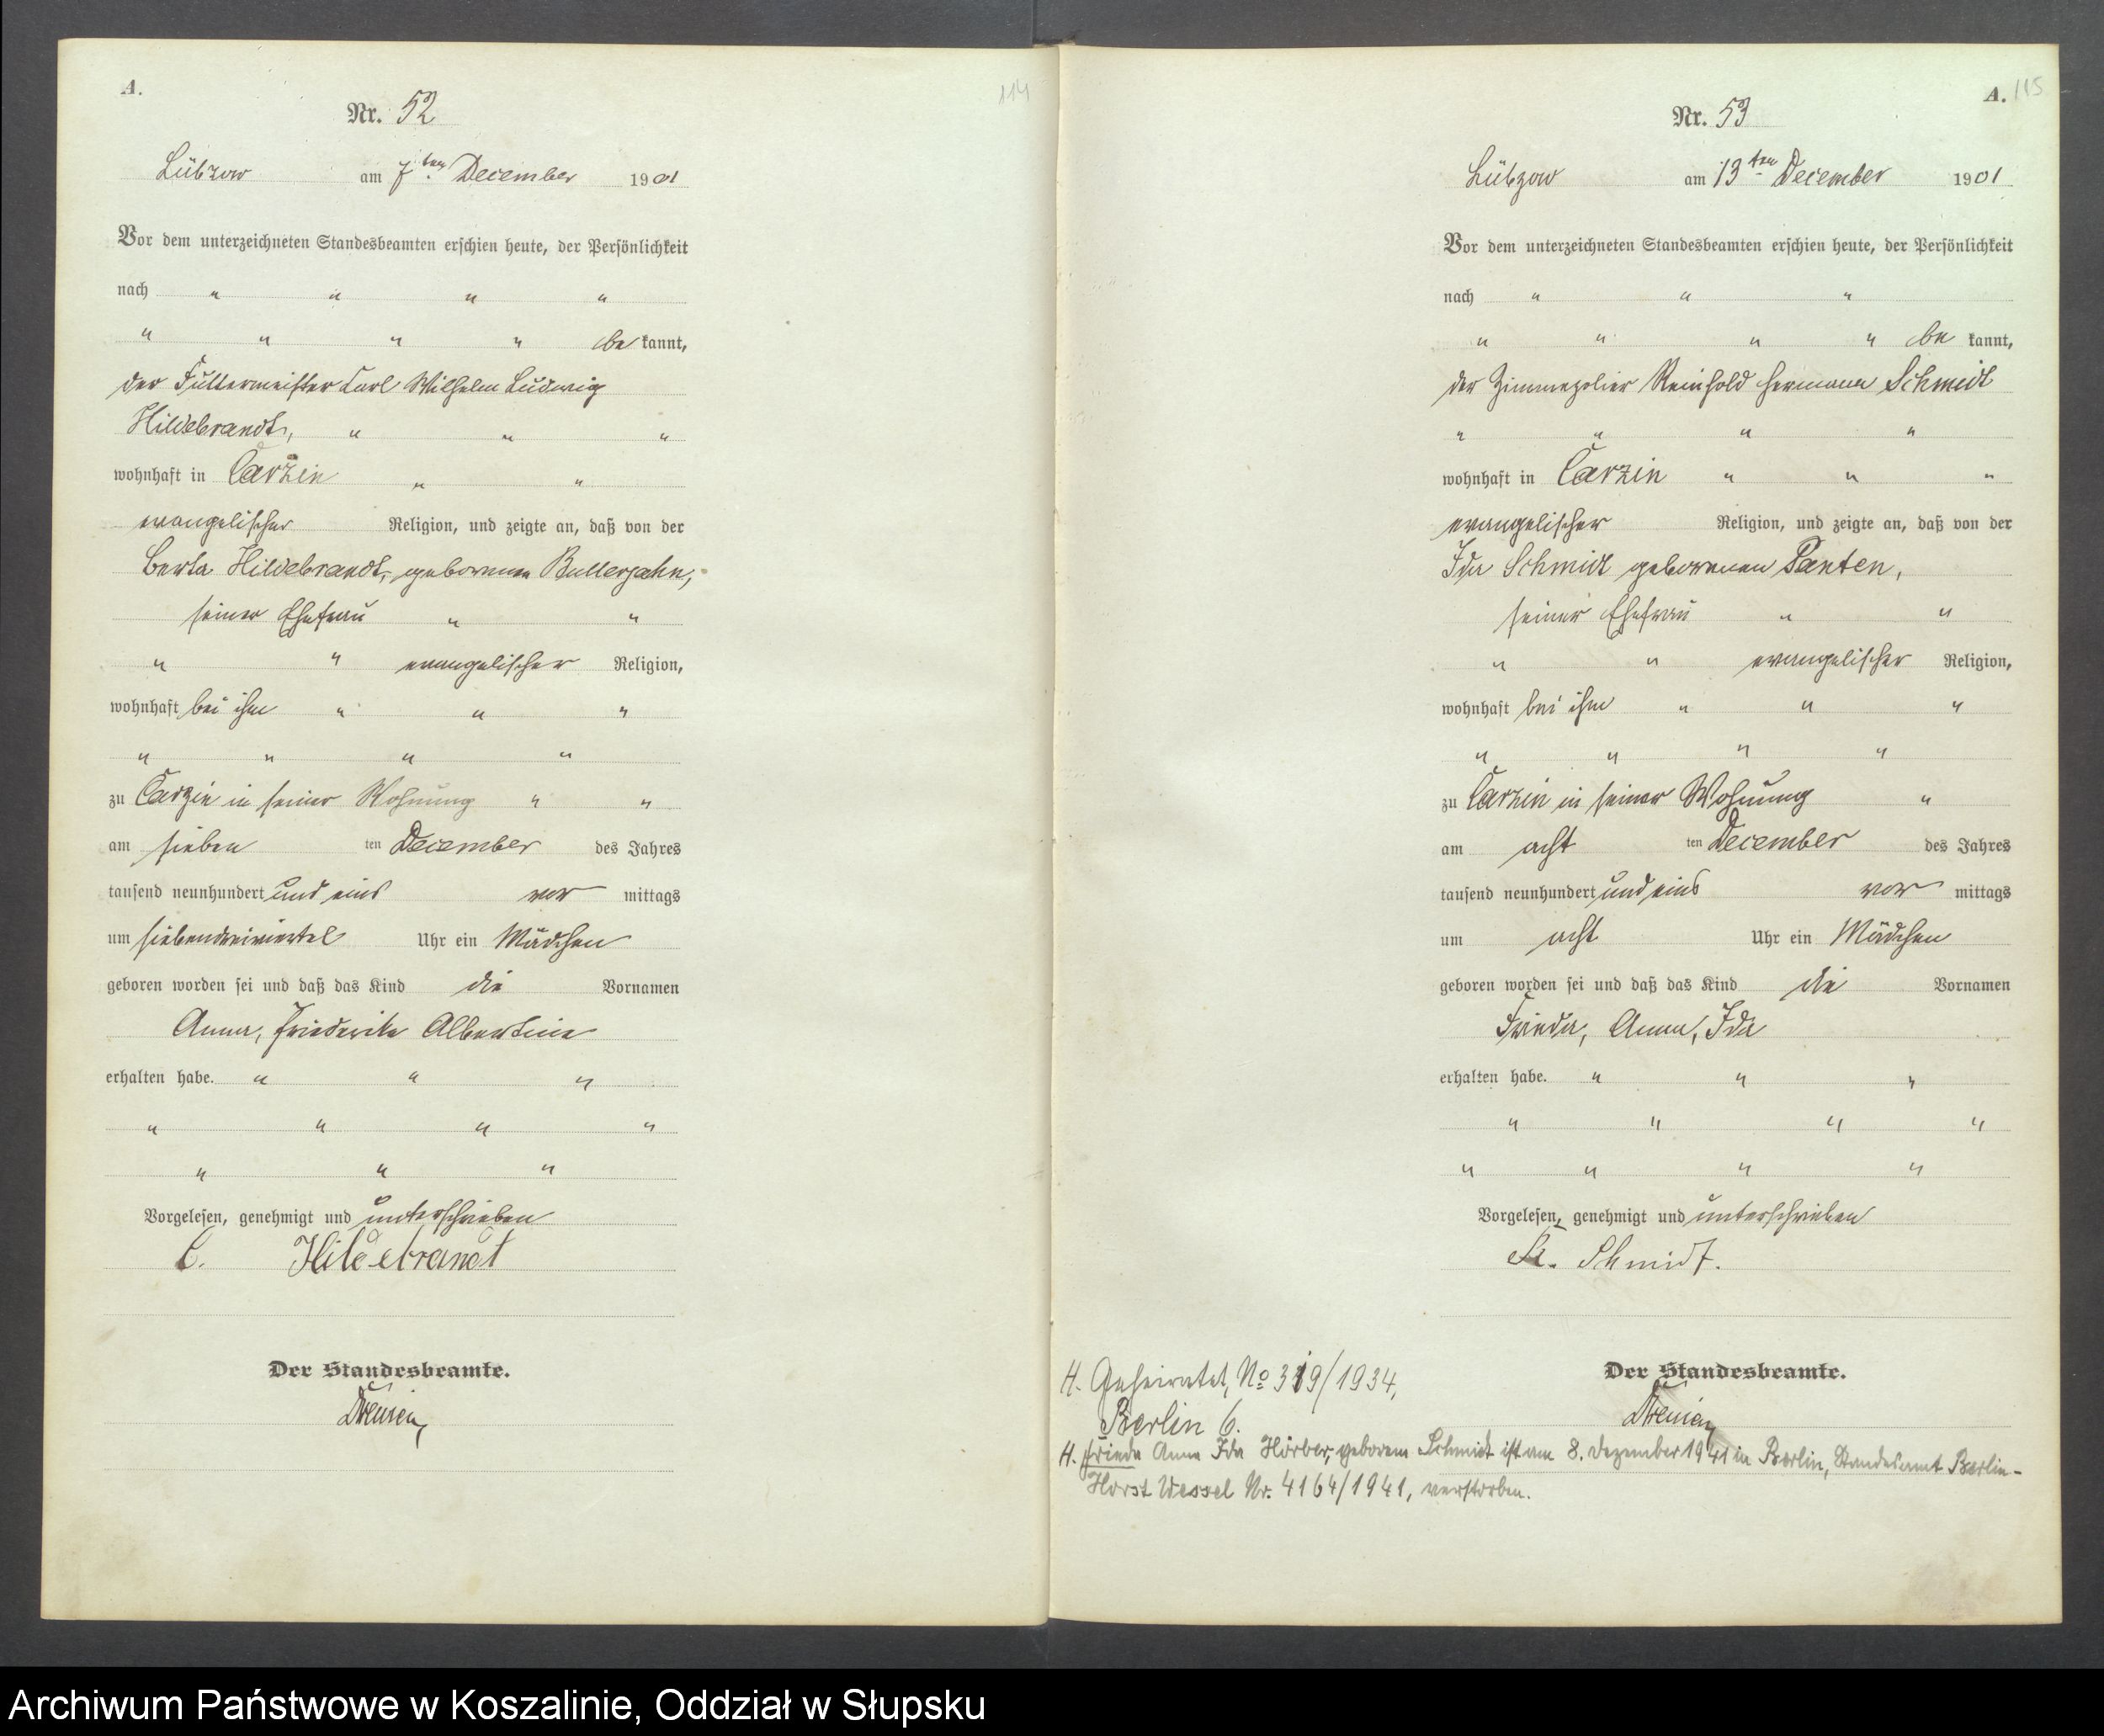 A.
114
Nr. 52
Lübzow am 7ten December 1901
Vor dem unterzeichneten Standesbeamten erschien heute, der Persönlichkeit
nach " " " "
" " " " be kannt,
der Futtermeister Carl Wilhelm Ludwig
Hildebrandt, " " "
wohnhaft in Carzin " "
evangelischer Religion, und zeigte an, daß von der
Berta Hildebrandt, geborenen Bullerjahn,
seiner Ehefrau " "
" " evangelischer Religion,
wohnhaft bei ihm " " "
" " " "
zu Carzin in seiner Wohnung " "
am sieben ten December des Jahres
tausend neunhundert und eins vor mittags
um siebendreiviertel Uhr ein Mädchen
geboren worden sei und daß das Kind die Vornamen
Anna, Friederike Albertine
erhalten habe. " " "
" " " "
" " "
Vorgelesen, genehmigt und unterschrieben
C. Hildebrandt
Der Standesbeamte.
A. 115
Nr. 53
Lübzow am 13ten December 1901
Vor dem unterzeichneten Standesbeamten erschien heute, der Persönlichkeit
nach " " "
" " " " be kannt,
der Zimmerpolier Reinhold Hermann Schmidt
" " " "
wohnhaft in Carzin " " "
evangelischer Religion, und zeigte an, daß von der
Ida Schmidt geborenen Panten,
seiner Ehefrau " "
" " evangelischer Religion,
wohnhaft bei ihm " " "
" " " "
zu Carzin in seiner Wohnung "
am acht ten December des Jahres
tausend neunhundert und eins vor mittags
um acht Uhr ein Mädchen
geboren worden sei und daß das Kind die Vornamen
Frieda, Anna, Ida
erhalten habe. " " "
" " " "
" " " "
Vorgelesen, genehmigt und unterschrieben
R. Schmidt.
Der Standesbeamte.
H. Geheiratet, No 319/1934,
Berlin 6.
H. Frieda Anna Ida Hörber, geborene Schmidt ist am 8. Dezember 1941 in Berlin, Standesamt Berlin-
Horst Wessel Nr. 4164/1941, verstorben.
Archiwum Państwowe w Koszalinie, Oddział w Słupsku